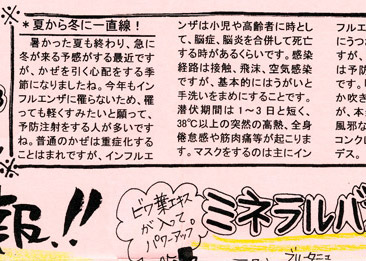 ＊夏から冬に一直線！
　暑かった夏も終わり、急に
冬が来る予感がする最近です
が、かぜを引く心配をする季
節になりましたね。今年もイン
フルエンザに罹らないため、罹
っても軽くすみたいと願って、
予防注射をする人が多いです
ね。普通のかぜは重症化する
ことはまれですが、インフルエ
ンザは小児や高齢者に時とし
て、脳症、脳炎を合併して死亡
する時があるくらいです。感染
経路は接触、飛沫、空気感染
ですが、基本的にはうがいと
手洗いをまめにすることです。
潜伏期間は１～３日と短く、
38℃以上の突然の高熱、全身
倦怠感や筋肉痛等が起こりま
す。マスクをするのは主にイン
フルエン
にうつ
すが、
は予防
です。
か吹き
が、本
風邪な
コンクし
デス。
報!!
ビワ葉エキス
が入って。
パワーアップ
ミネラルバ